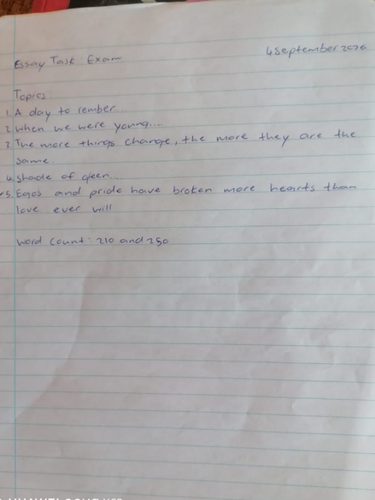 Essay Task Exam
4 September 2026
Topics
1. A day to rember...
2. When we were young....
3. The more things change, the more they are the
same
4. Shade of green...
5. Egos and pride have broken more hearts than
love ever will
Word Count: 210 and 250